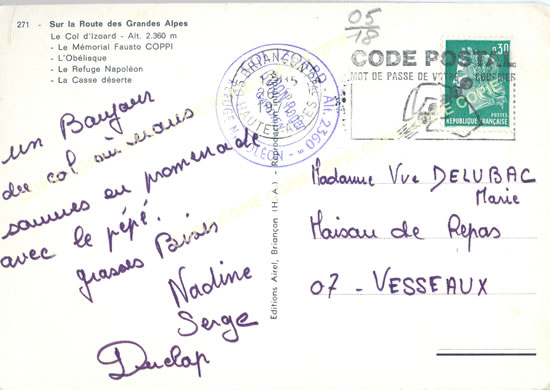 271 - Sur la Route des Grandes Alpes
Le Col d'Izoard - Alt. 2.360 m
- Le Mémorial Fausto COPPI
- L'Obélisque
- Le Refuge Napoléon
- La Casse déserte
un Bonjour
du col où nous
sommes en promenade
avec le pépé.
grosses Bises
Nadine
Serge
Duclap
Editions Airel, Briançon (H.A.) - Reproduction
05/18
BRIANÇON
HAUTES ALPES
IZOARD - Alt. 2360
REFUGE NAPOLÉON
CODE POSTAL
MOT DE PASSE DE VOTRE COURRIER
0,30
POSTES
RÉPUBLIQUE FRANÇAISE
COPIE
Madame Vve DELUBAC
Marie
Maison de Repas
07 - VESSEAUX